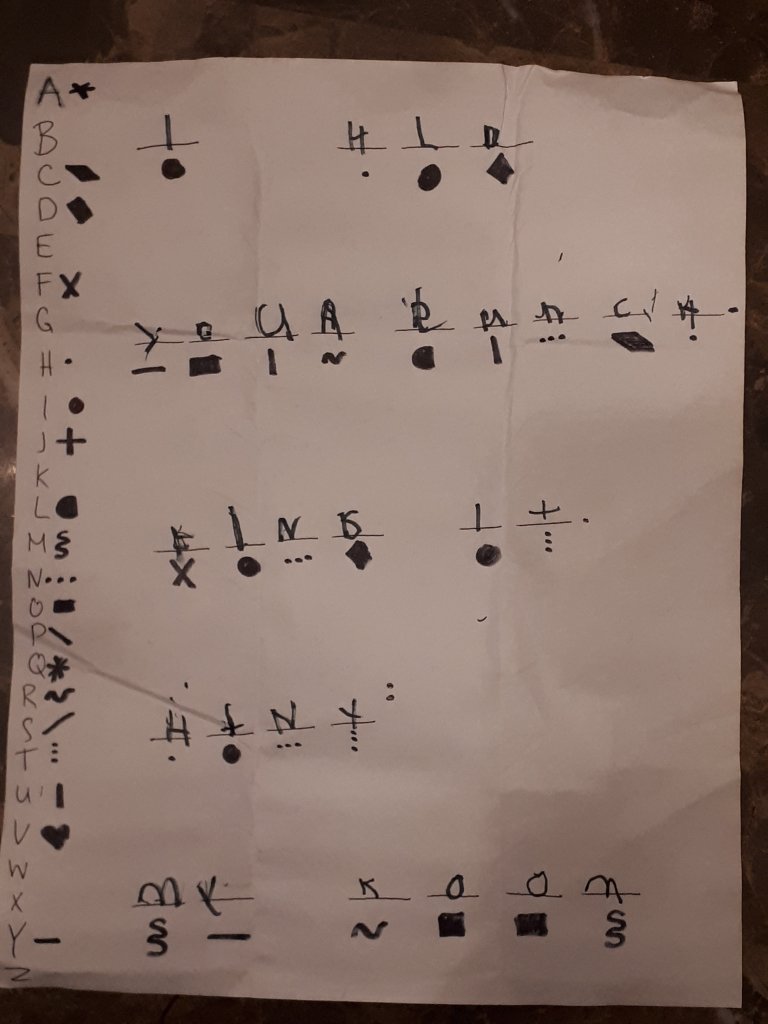 A
B
C
D
E
F
G
H
I
J
K
L
M
N
O
P
Q
R
S
T
U
V
W
X
Y
Z
I HID
YOUR LUNCH.
FIND IT.
HINT:
MY ROOM